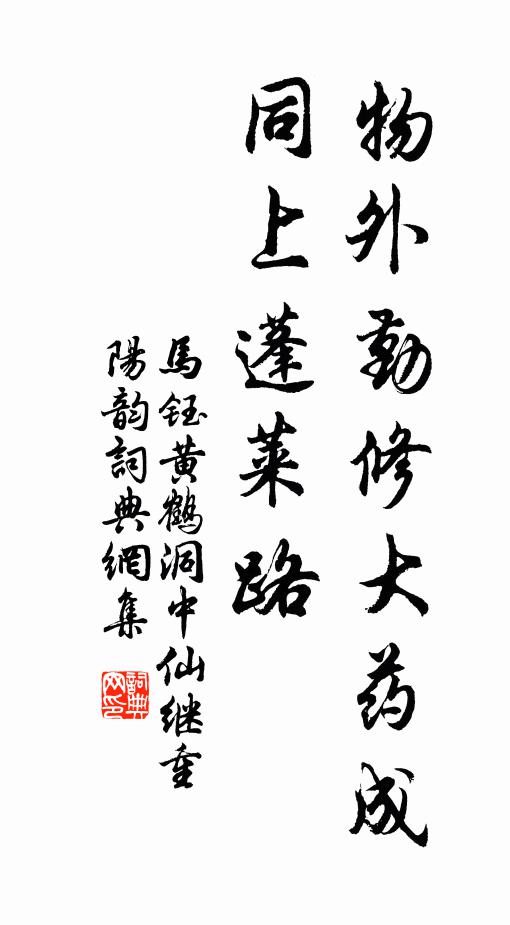 物外勤修大药成
同上蓬莱路
馬鈺黄鹤洞中仙继重
陽韵詞典網集
詞典网印